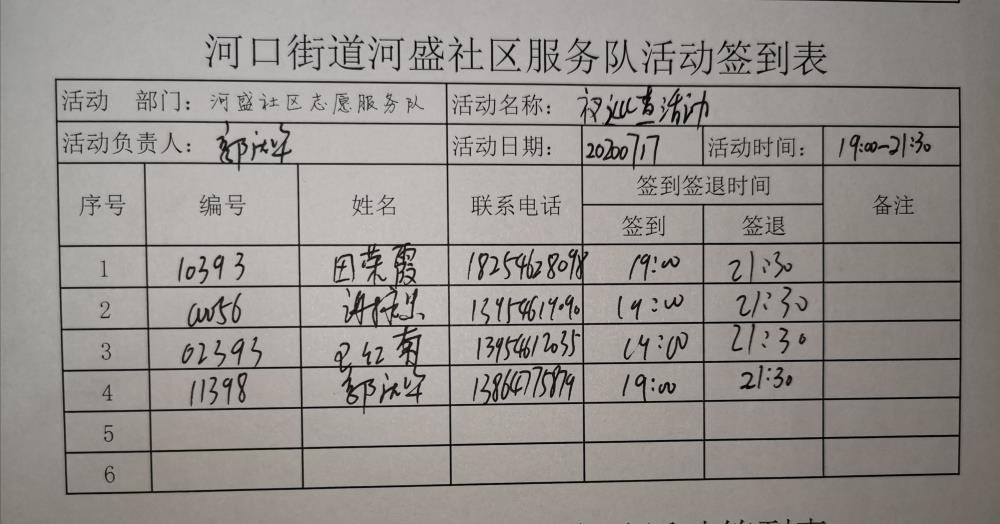 河口街道河盛社区服务队活动签到表
活动 部门: 河盛社区志愿服务队 活动名称: 活动
活动负责人: 活动日期: 20200717 活动时间: 19:00-21:30
序号 编号 姓名 联系电话 签到签退时间 备注
签到 签退
1 10393 田荣霞 18254628098 19:00 21:30
2 19:00 21:30
3 02393 13954612035 19:00 21:30
4 11398 13864775879 19:00 21:30
5
6